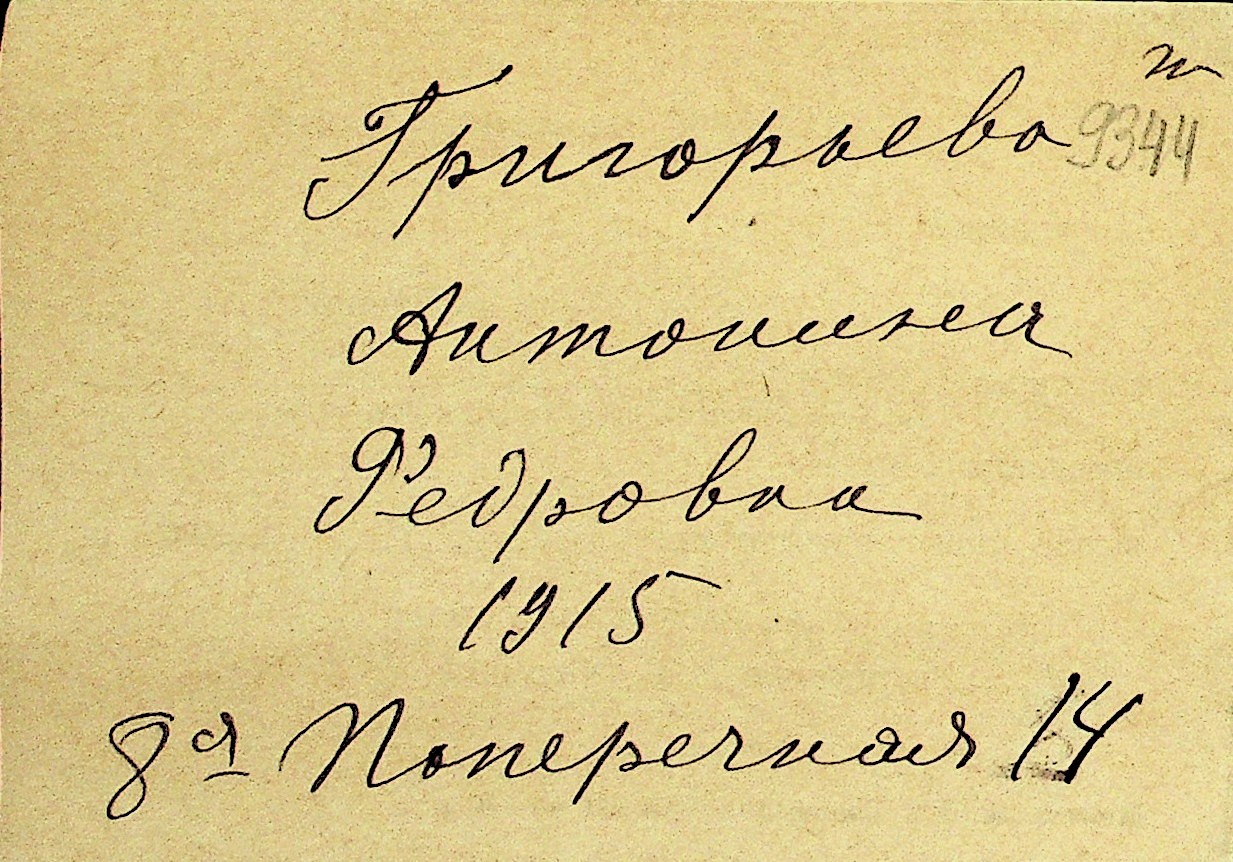 Григорьева 9344
Антонина
Федровна
1915
8ая Поперечная 14